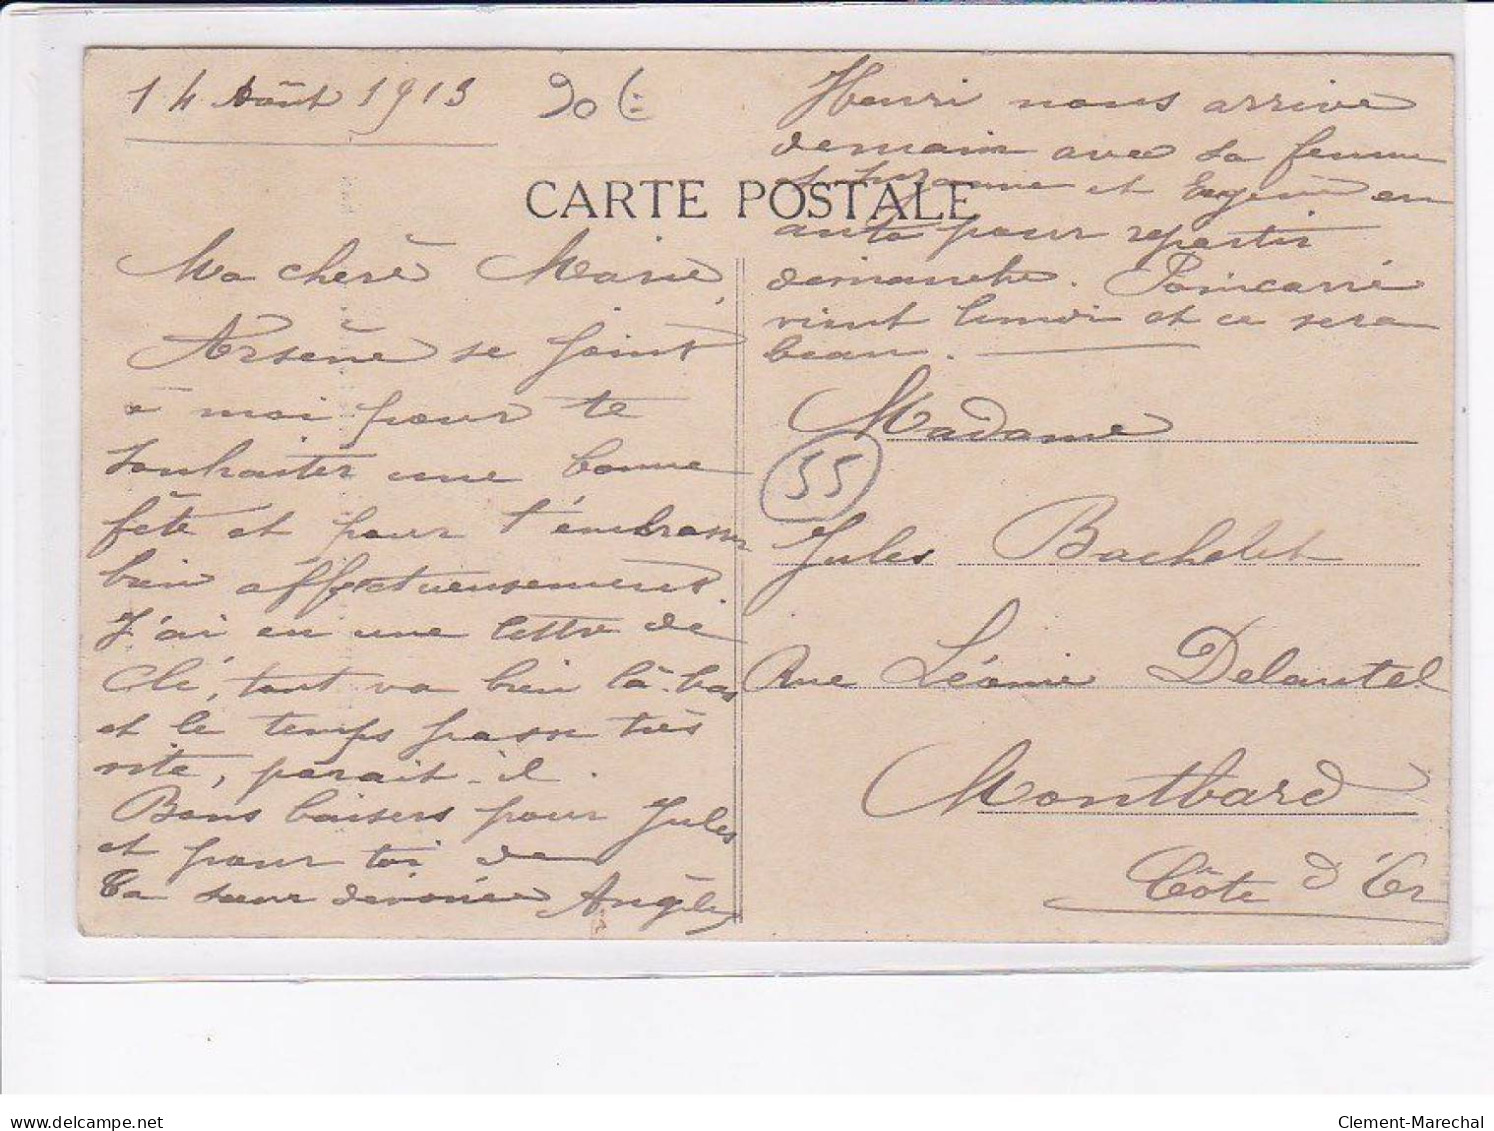 14 Août 1913
CARTE POSTALE
Ma chère Marie,
Arsène se joint
à moi pour te
souhaiter une bonne
fête et pour t'embrasser
bien affectueusement.
J'ai eu une lettre de
Clé, tout va bien là-bas
et le temps passe très
vite, paraît-il.
Bons baisers pour Jules
et pour toi de
ta sœur dévouée Angèle
Henri nous arrive
demain avec sa femme
et Suzanne et Eugénie en
auto pour repartir
dimanche. Poincarré
vient lundi et ce sera
beau.
Madame
55
Jules Bachelet
Rue Léonie Delautel
Montbard
Côte d'Or
delcampe.net
Clement-Marechal